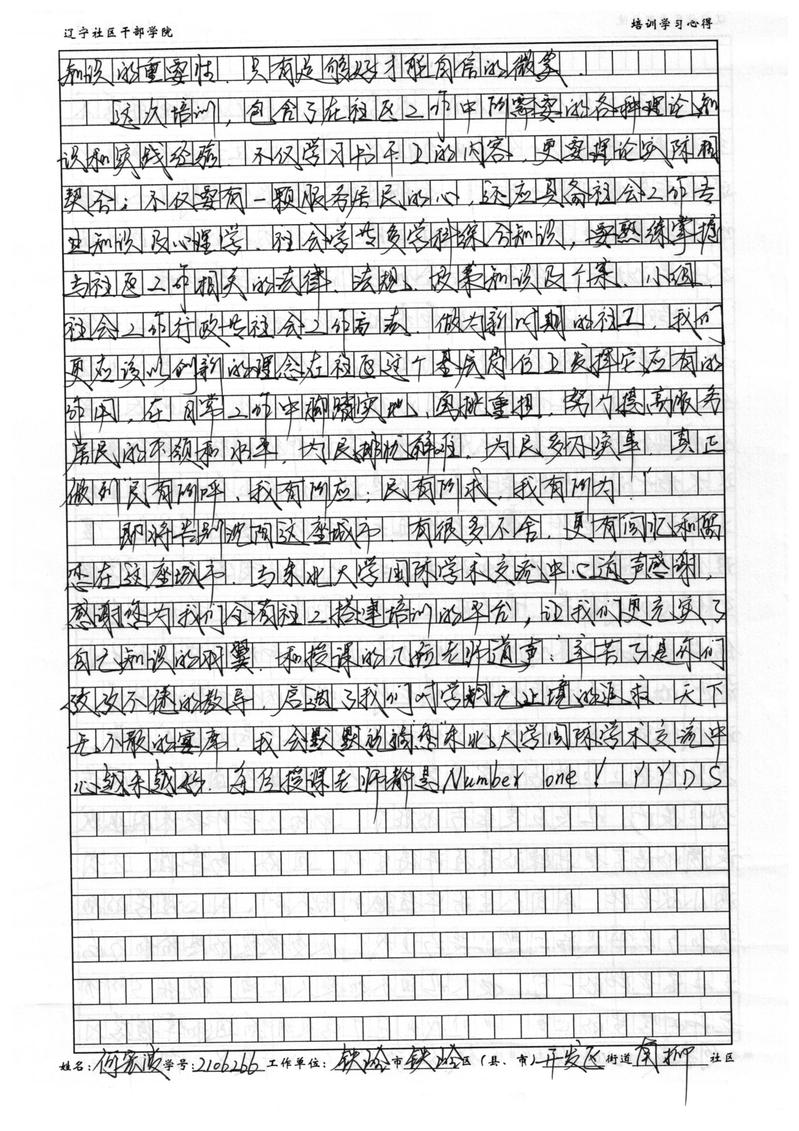 辽宁社区干部学院 培训学习心得
知识的重要性,只有足够好才能自信的微笑.
这次培训,包含了在社区工作中所需要的各种理论知
识和实践经验.不仅学习书本上的内容,更要理论实际相
契合;不仅要有一颗服务居民的心,还应具备社会工作专
业知识及心理学、社会学等多学科综合知识,要熟练掌握
与社区工作相关的法律、法规、政策知识及个案、小组、
社会工作行政等社会工作方法.做为新时期的社工,我们
更应该以创新的理念在社区这个基层岗位上发挥它应有的
作用,在日常工作中脚踏实地,勇挑重担,努力提高服务
居民的本领和水平,为民排忧解难,为民多办实事,真正
做到"民有所呼,我有所应;民有所求,我有所为!"
即将告别沈阳这座城市,有很多不舍,更有回忆和留
恋在这座城市.与东北大学国际学术交流中心道声感谢,
感谢您为我们全省社工搭建培训的平台,让我们更充实了
自己知识的羽翼.和授课的几位老师道声:辛苦了是你们
孜孜不倦的教导,启迪了我们对学无止境的追求.天下
无不散的宴席,我会默默祝福您东北大学国际学术交流中
心越来越好.各位授课老师都是Number one! YYDS
姓名:何宏波 学号:2106266 工作单位:铁岭市铁岭区(县、市)开发区街道南柳社区